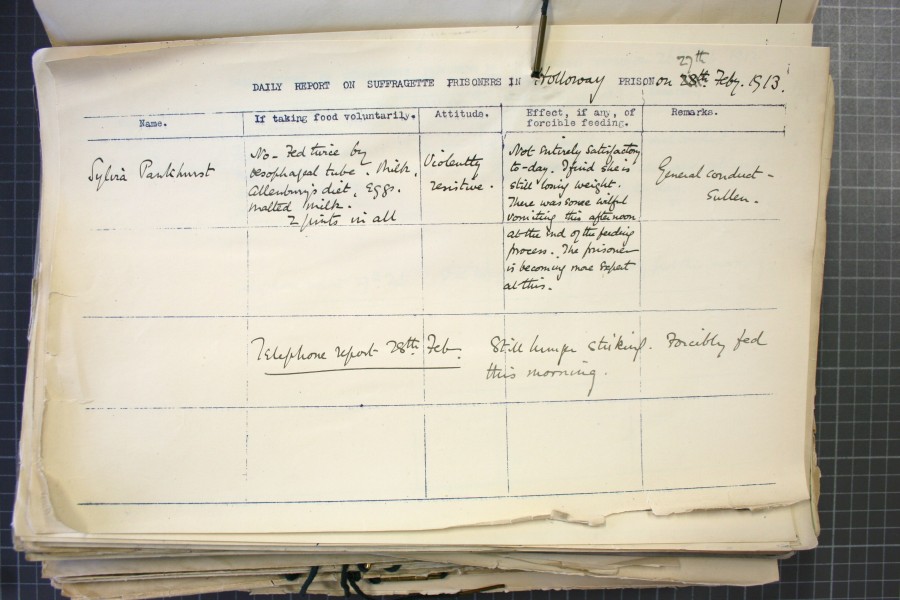 27th
DAILY REPORT ON SUFFRAGETTE PRISONERS IN Holloway PRISON on 28th. Feby. 1913.
Name.
If taking food voluntarily.
Attitude.
Effect, if any, of
forcible feeding.
Remarks.
Sylvia Pankhurst
No - Fed twice by
oesophageal tube. Milk,
Allenbury's diet, Eggs.
malted milk.
2 pints in all
Violently
resistive.
Not entirely satisfactory
to-day. I find she is
still losing weight.
There was some wilful
vomiting this afternoon
at the end of the feeding
process. The prisoner
is becoming more expert
at this.
General conduct -
Sullen.
Telephone report 28th Feb. Still hunger striking. Forcibly fed
this morning.